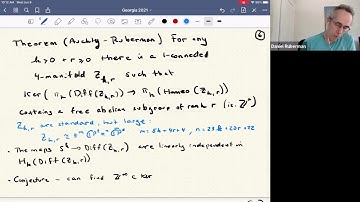 10:12 AM Wed Jun 9
Georgia 2021
6
Theorem (Auckly-Ruberman) For any
k>0 + r≥0 there is a 1-connected
4-manifold Z_{k,r} such that
Ker (π_k (Diff(Z_{k,r})) → π_k (Homeo (Z_{k,r}))
contains a free abelian subgroup of rank r (i.e. ℤ^r)
Z_{k,r} are standard, but large:
The maps S^k → Diff(Z_{k,r}) are linearly independent in
H_k(Diff(Z_{k,r}))
Conjecture - can find ℤ^∞ ⊂ ker
Daniel Ruberman